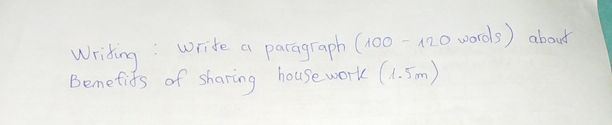 Writing : Write a paragraph (100 - 120 words) about
Benefits of sharing housework (1.5m)